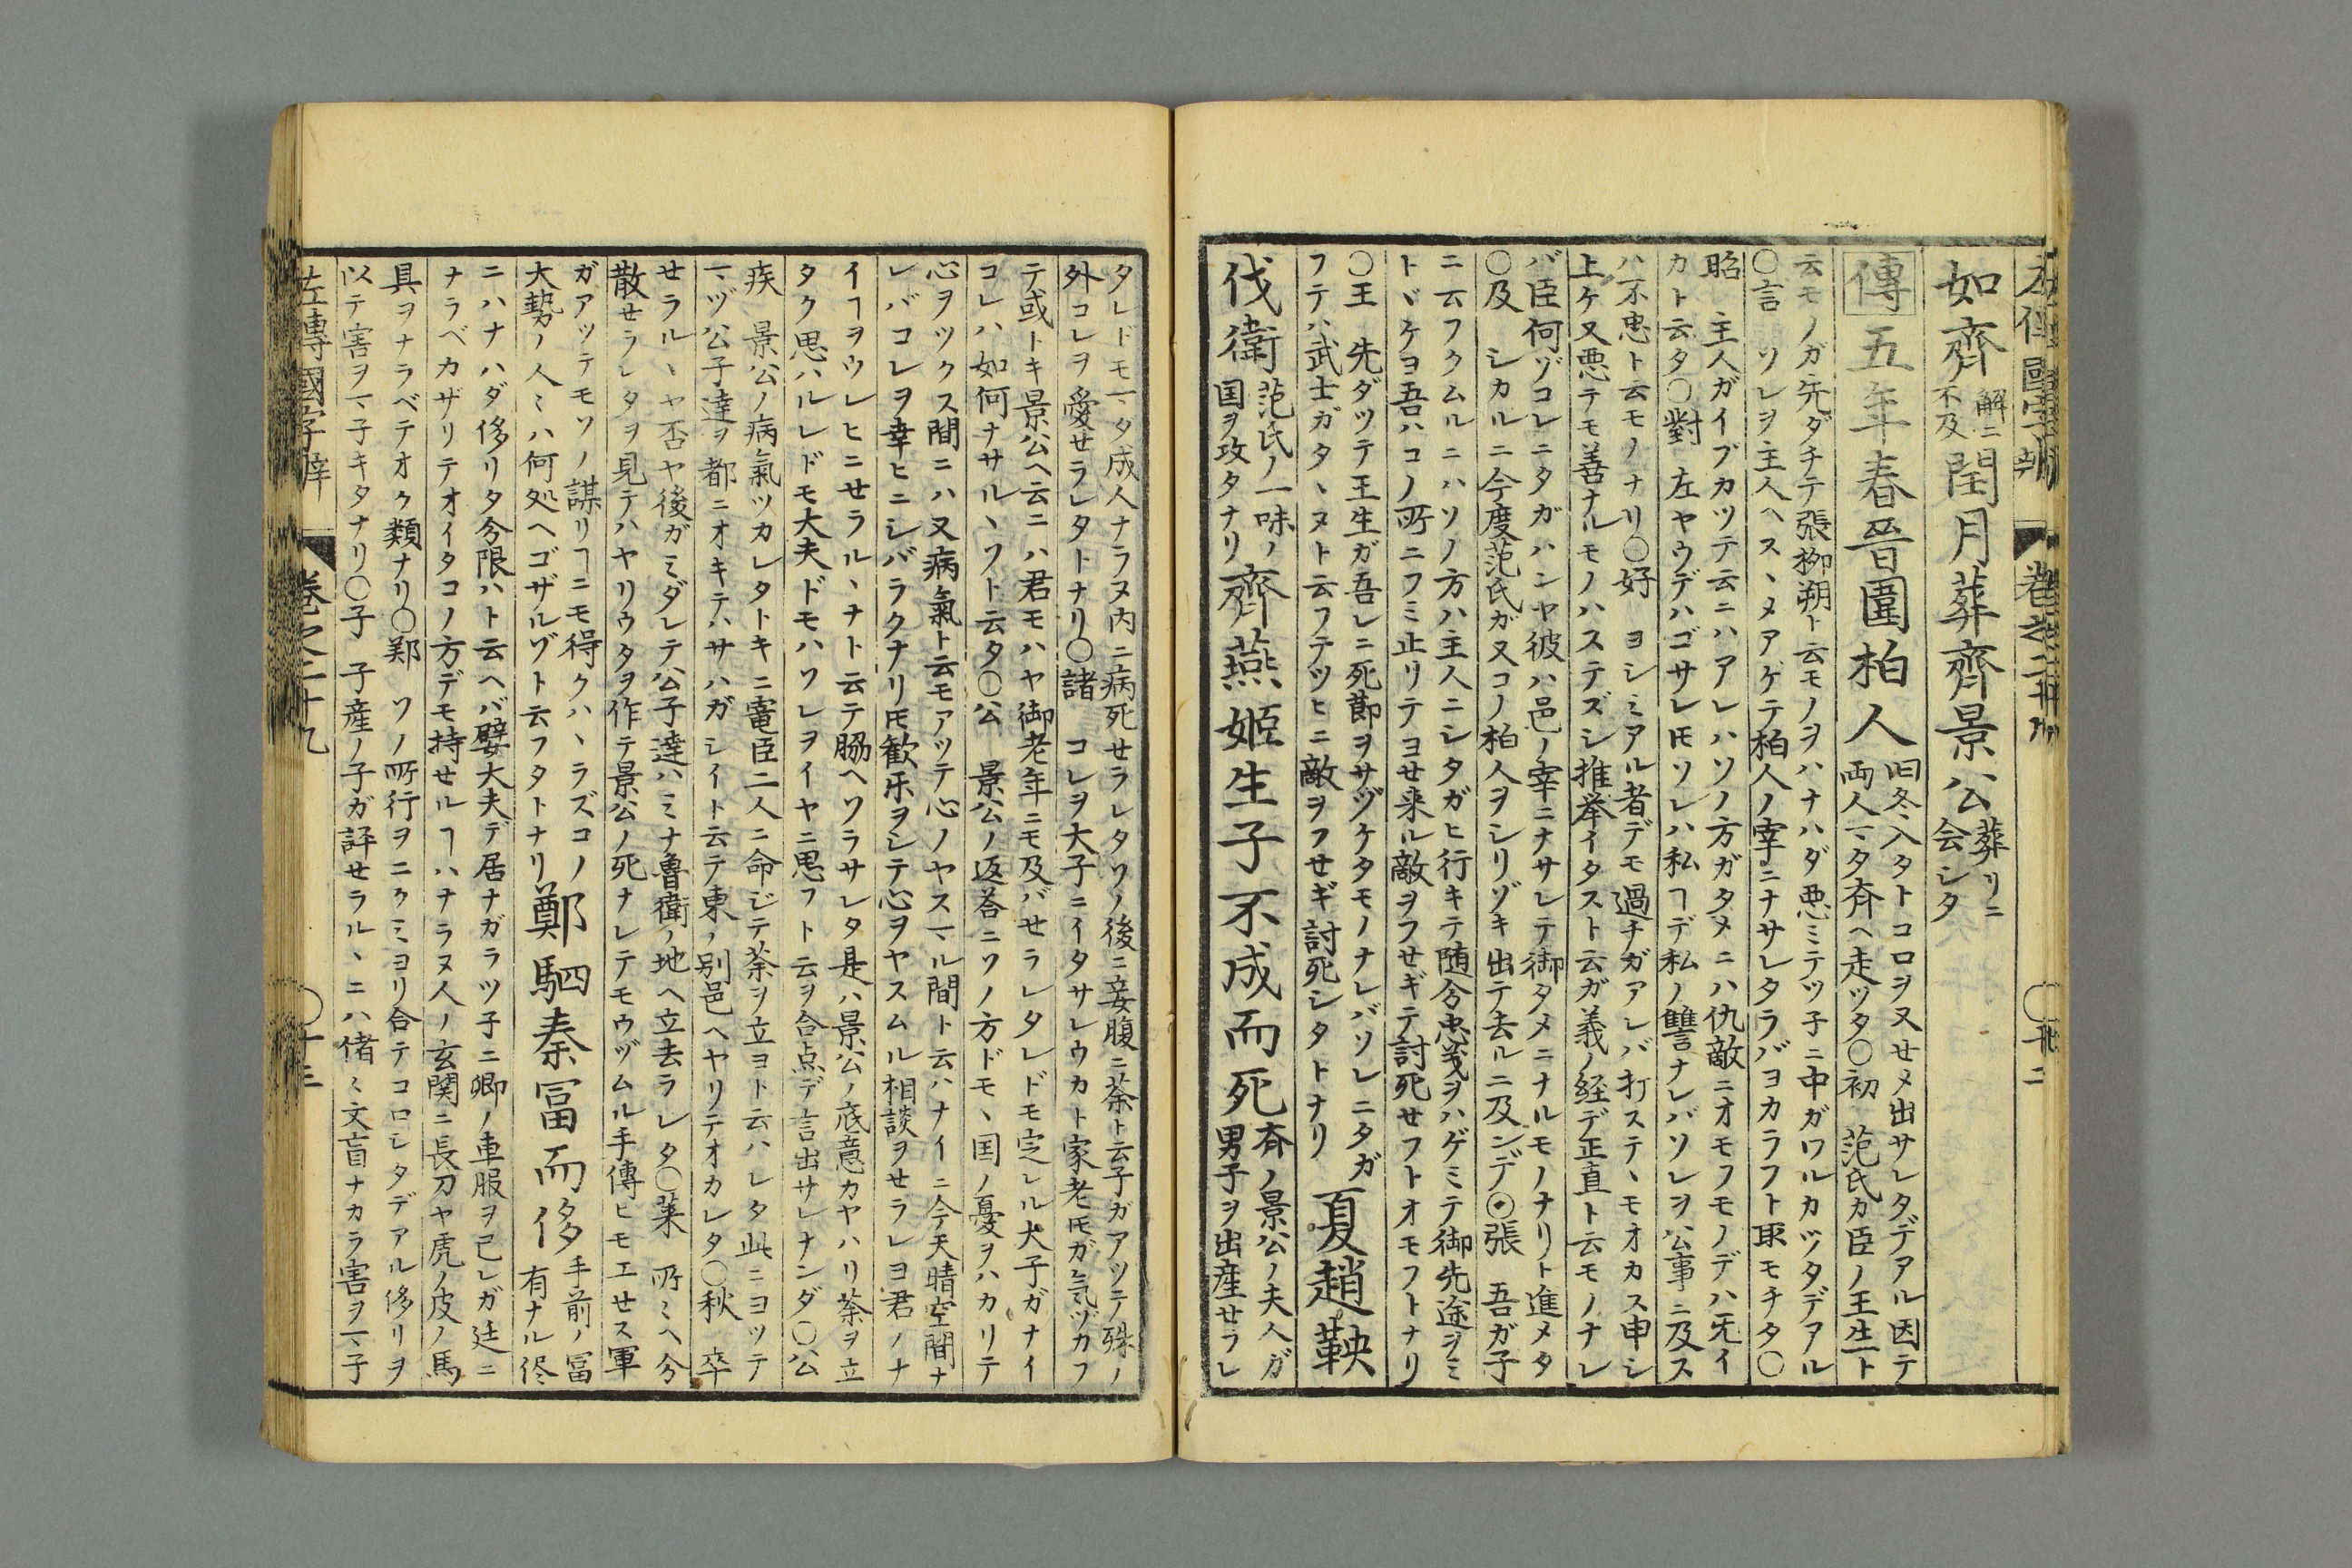 左傳國字辨 卷之二十九 〇十二
如齊 解ニ
不及 閏月葬齊景公 葬リニ
会シタ
傳 五年春晉圍柏人 旧冬入タトコロヲ又せメ出サレタデアル因テ
両人マタ斉ヘ走ツタ〇初 范氏カ臣ノ王生ト
云モノガ先ダチテ張柳朔ト云モノヲハナハダ悪ミテツ子ニ中ガワルカツタデアル
〇言 ソレヲ主人ヘスヽメアゲテ柏人ノ宰ニナサレタラバヨカラフト取モチタ〇
昭 主人ガイブカツテ云ニハアレハソノ方ガタメニハ仇敵ニオモフモノデハ旡イ
カト云タ〇對 左ヤウデハゴサレ𪜈ソレハ私ヿデ私ノ讐ナレバソレヲ公事ニ及ス
ハ不忠ト云モノナリ〇好 ヨシミアル者デモ過チガアレバ打ステヽモオカス申シ
上ケ又悪テモ善ナルモノハステズシ推挙イタスト云ガ義ノ経デ正直ト云モノナレ
バ臣何ゾコレニタガハンヤ彼ハ邑ノ宰ニナサレテ御タメニナルモノナリト進メタ
〇及 シカルニ今度范氏ガ又コノ柏人ヲシリゾキ出テ去ルニ及ンデ〇張 吾ガ子
ニ云フクムルニハソノ方ハ主人ニシタガヒ行キテ随分忠義ヲハゲミテ御先途ヲミ
トヾケヨ吾ハコノ所ニフミ止リテヨせ来ル敵ヲフせギテ討死せフトオモフトナリ
〇王 先ダツテ王生ガ吾レニ死節ヲサヅケタモノナレバソレニタガ
フテハ武士ガタヽヌト云フテツヒニ敵ヲフせギ討死シタトナリ 夏趙鞅
伐衛 范氏ノ一味ノ
国ヲ攻タナリ 齊燕姬生子不成而死 斉ノ景公ノ夫人ガ
男子ヲ出産せラレ
タレドモマタ成人ナラヌ内ニ病死せラレタソノ後ニ妾腹ニ荼ト云子ガアツテ殊ノ
外コレヲ愛せラレタトナリ〇諸 コレヲ大子ニイタサレウカト家老𪜈ガ気ヅカフ
テ或トキ景公ヘ云ニハ君モハヤ御老年ニモ及バせラレタレドモ定レル大子ガナイ
コレハ如何ナサルヽソト云タ〇公 景公ノ返荅ニソノ方ドモヽ国ノ憂ヲハカリテ
心ヲツクス間ニハ又病氣ト云モアツテ心ノヤスマル間ト云ハナイニ今天晴空間ナ
レバコレヲ幸ヒニシバラクナリ𪜈歓乐ヲシテ心ヲヤスムル相談ヲせラレヨ君ノナ
イヿヲウレヒニせラルヽナト云テ脇ヘソラサレタ是ハ景公ノ底意カヤハリ荼ヲ立
タク思ハルレドモ大夫ドモハソレヲイヤニ思フト云ヲ合点デ言出サレナンダ〇公
疾 景公ノ病氣ツカレタトキニ竉臣二人ニ命ジテ荼ヲ立ヨト云ハレタ此ニヨツテ
マヅ公子達ヲ都ニオキテハサハガシイト云テ東ノ別邑ヘヤリテオカレタ〇秋 卒
せラルヽヤ否ヤ後ガミダレテ公子達ハミナ魯衛ノ地ヘ立去ラレタ〇莱 所ミヘ分
散せラレタヲ見テハヤリウタヲ作テ景公ノ死ナレテモウヅムル手傳ヒモエせス軍
ガアツテモソノ謀リヿニモ得クハヽラズコノ
大勢ノ人ミハ何処ヘゴザルゾト云フタトナリ 鄭駟秦冨而侈 手前ノ冨
有ナル侭
ニハナハダ侈リタ分限ハト云ヘバ嬖大夫デ居ナガラツ子ニ卿ノ車服ヲ己レガ廷ニ
ナラベカザリテオイタコノ方デモ持せルヿハナラヌ人ノ玄関ニ長刀ヤ虎ノ皮ノ馬
具ヲナラベテオク類ナリ〇鄭 ソノ所行ヲニクミヨリ合テコロシタデアル侈リヲ
以テ害ヲマ子キタナリ〇子 子産ノ子ガ評せラルヽニハ偖ミ文盲ナカラ害ヲマ子
左傳國字辨 卷之二十九 〇十三